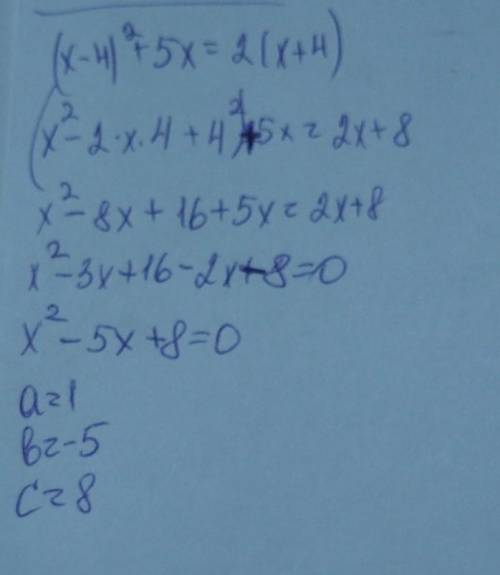 (x-4)²+5x=2(x+4)
(x²-2·x·4+4²)+5x=2x+8
x²-8x+16+5x=2x+8
x²-3x+16-2x-8=0
x²-5x+8=0
a=1
b=-5
c=8